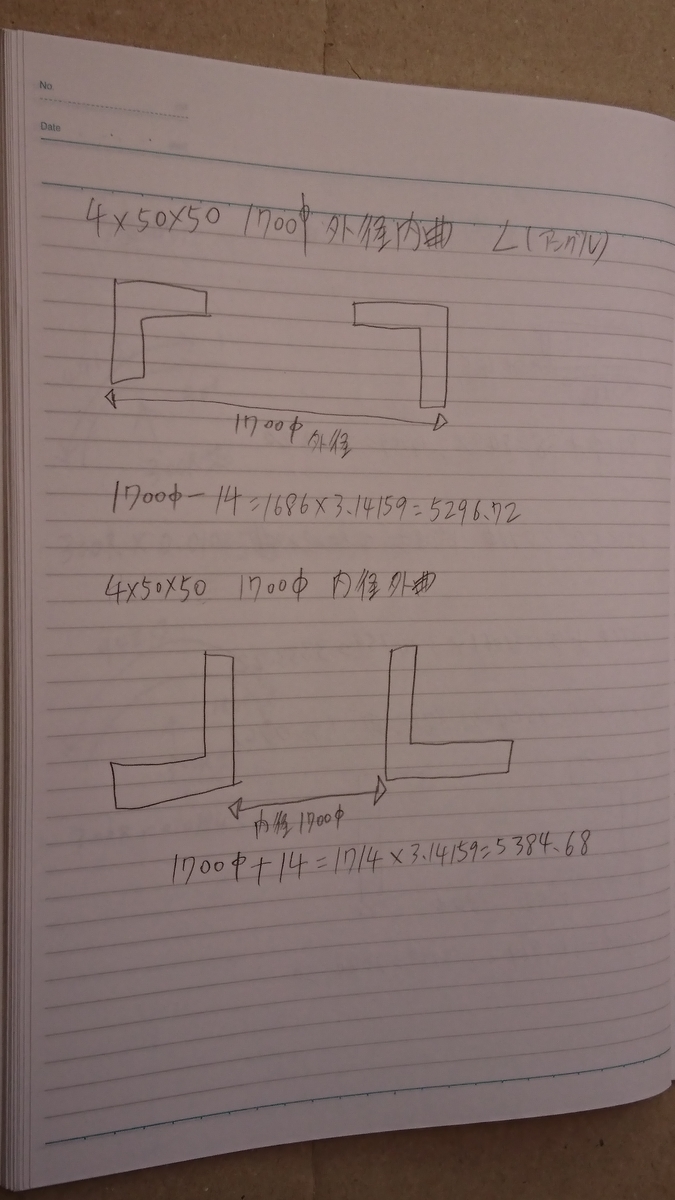 No
Date
4×50×50 1700φ 外径内曲 L(アングル)
1700φ 外径
1700φ-14=1686×3.14159=5296.72
4×50×50 1700φ 内径外曲
内径1700φ
1700φ+14=1714×3.14159=5384.68